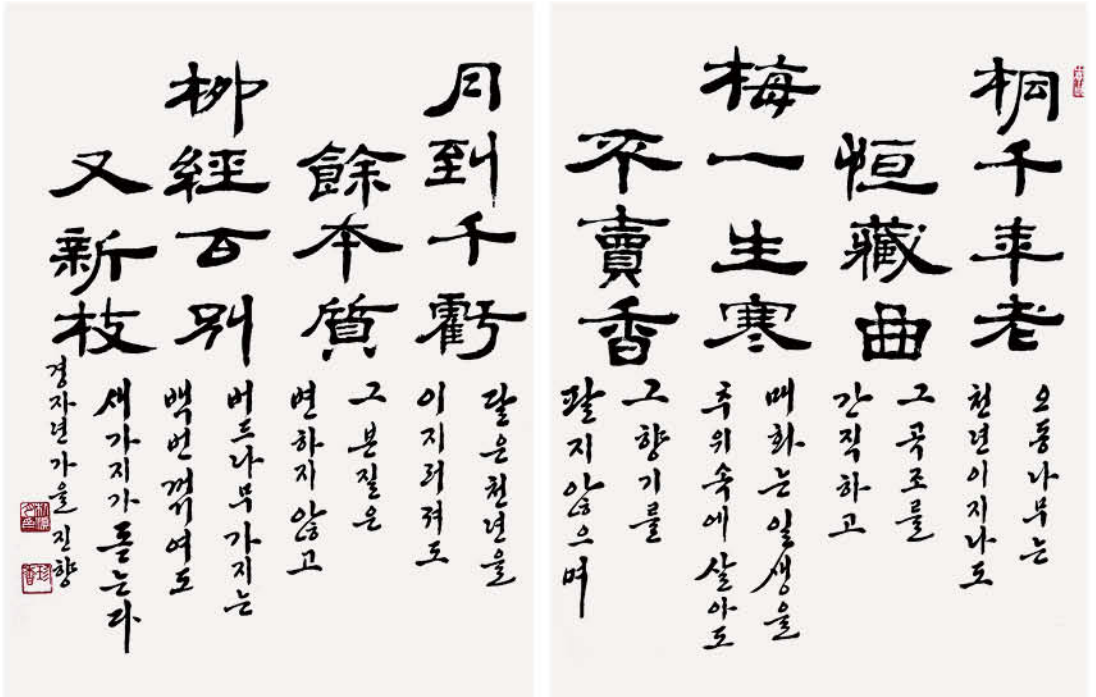 桐千年老
恒藏曲
梅一生寒
不賣香
오동나무는
천년이지나도
그곡조를
간직하고
매화는일생을
추위속에살아도
그향기를
팔지않으며
月到千虧
餘本質
柳經百別
又新枝
달은천년을
이지러져도
그본질은
변하지않고
버드나무가지는
백번꺾여도
새가지가돋는다
경자년가을 진향